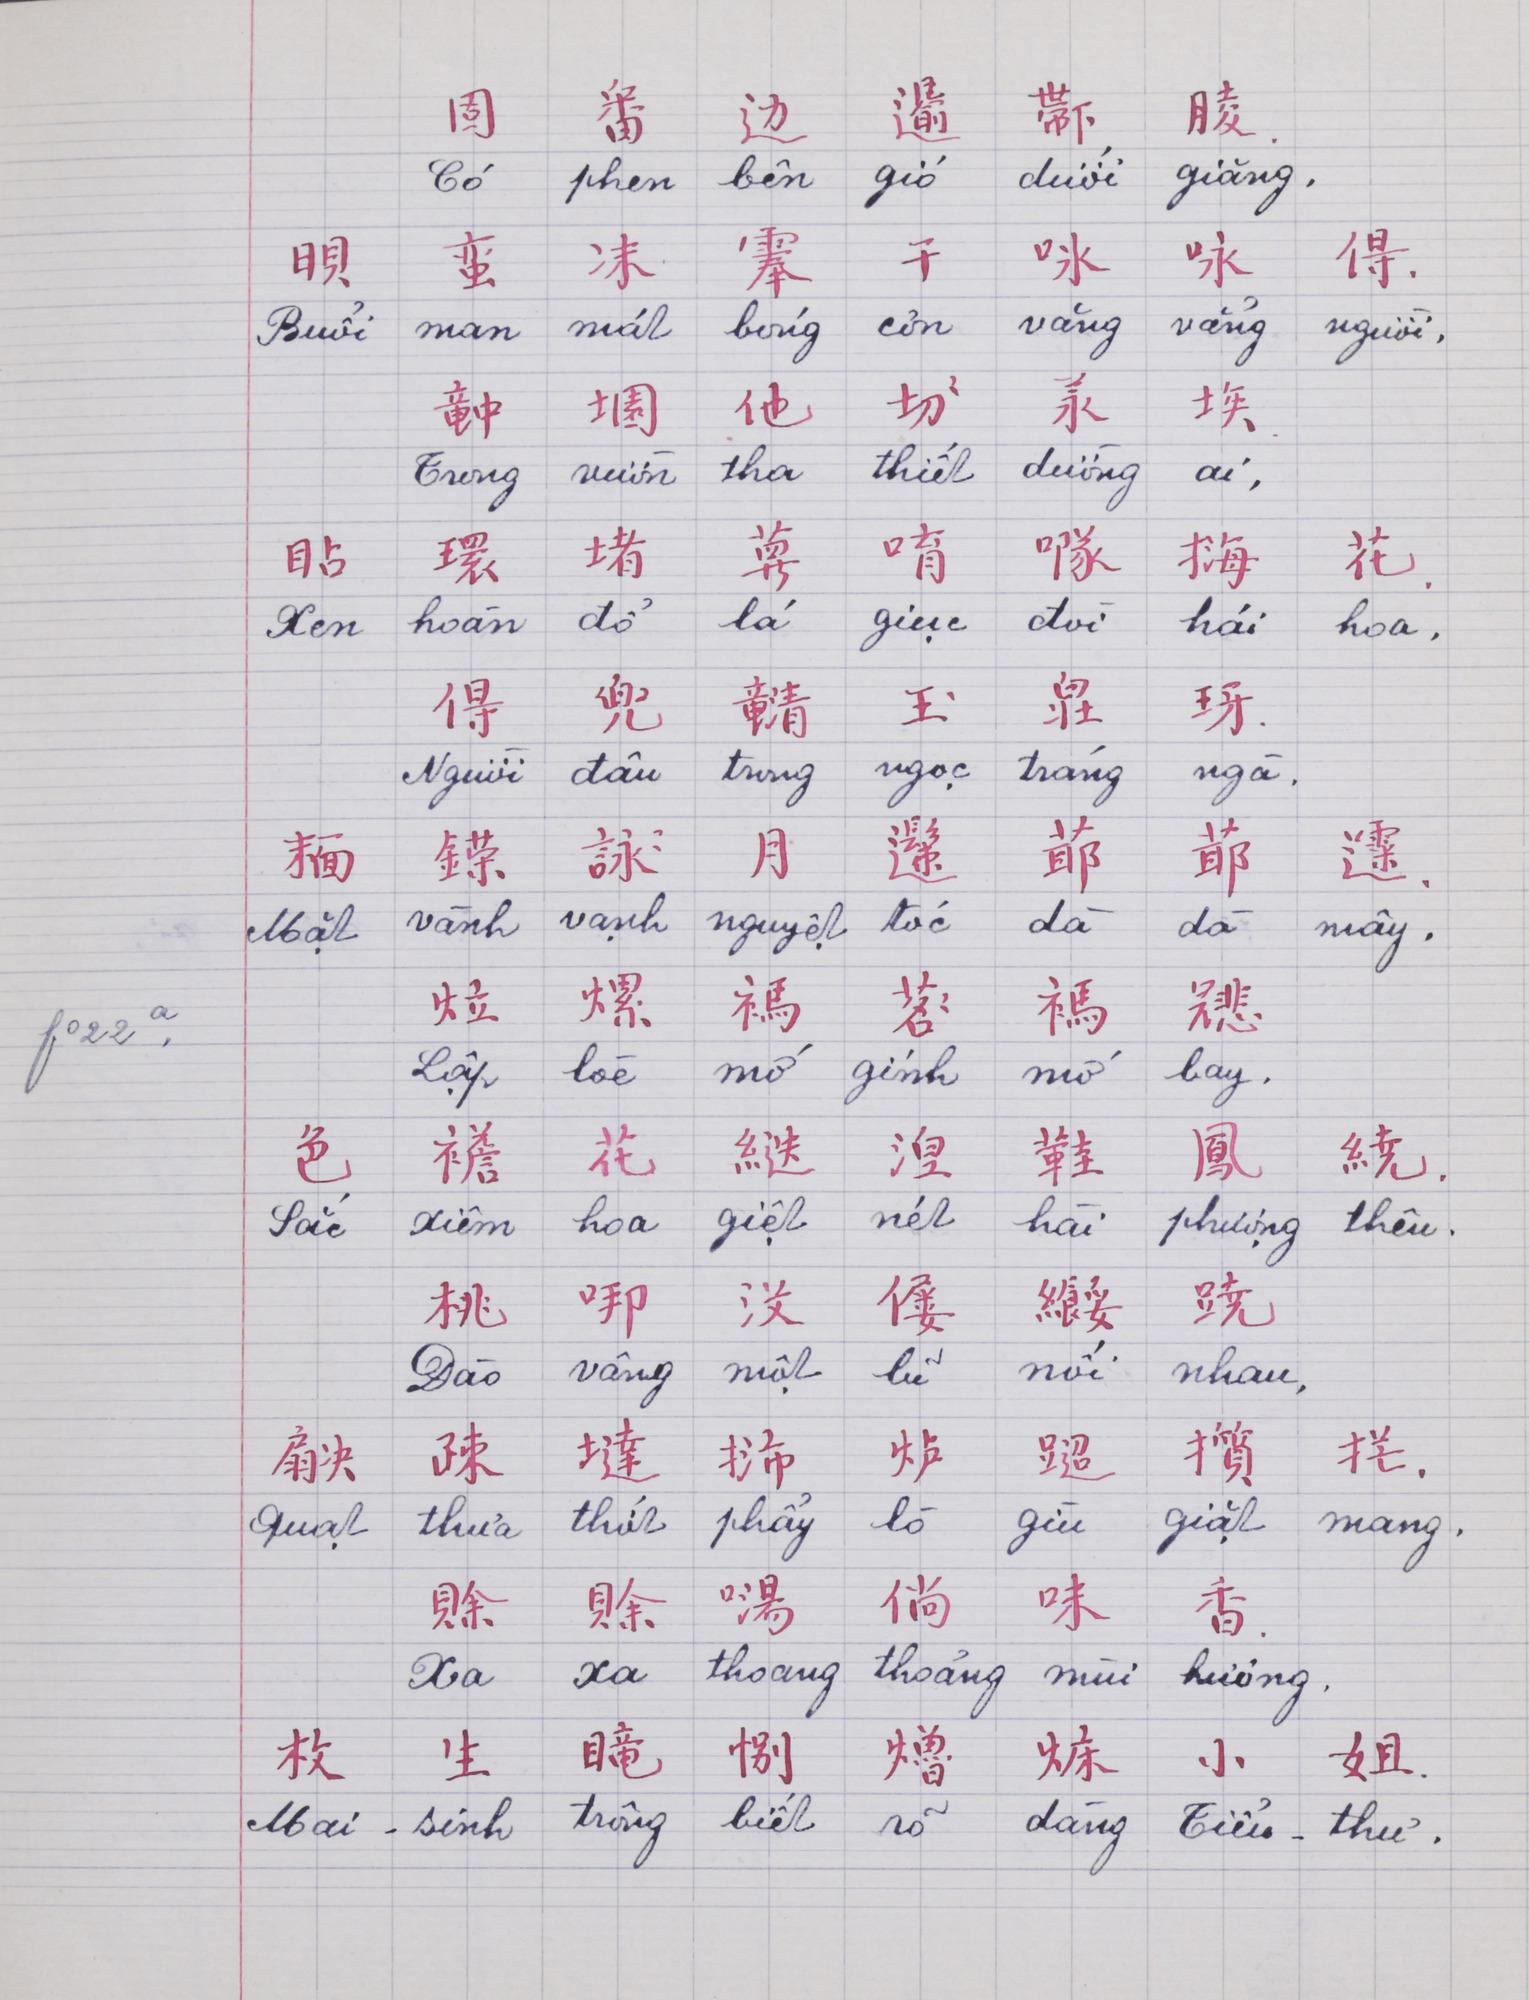 固 番 边 𨕭 𤲂 𦝄.
Có phen bên gió dưới giăng.
䀿 蛮 沫 䨜 干 咏 咏 得.
Buổi man mát bóng cơn văng vẳng người.
𥪝 園 他 切 羕 埃.
Trong vườn tha thiết dường ai,
貼 環 堵 蘿 唷 隊 挴 花.
Xen hoàn đổ lá giục đòi hái hoa.
得 兜 𥪝 玉 𤽸 玡.
Người đâu trong ngọc trắng ngà.
𩈘 鑅 詠 月 𩯀 𦰟 𦰟 𩄲.
Mặt vành vạnh nguyệt tóc dà dà mây.
𤇥 㷟 禡 𦹳 禡 𢒎
Lập loè mớ gính mớ bay.
色 襜 花 𦄅 涅 鞋 鳳 繞.
Sắc xiêm hoa giệt nét hài phượng thêu.
桃 㖮 没 僂 𦇒 蹺
Đào vâng một lũ nối nhau,
𦑗 疎 墶 抪 炉 𨅮 擯 𢬄.
Quạt thưa thớt phẩy lò giìu giặt mang.
賖 賖 啺 倘 味 香.
Xa xa thoang thoảng mùi hương.
枚 生 𥊚 別 𤑟 𤇌 小 姐.
Mai - sinh trông biết rõ dàng Tiểu - thư.
fº 22 ª.